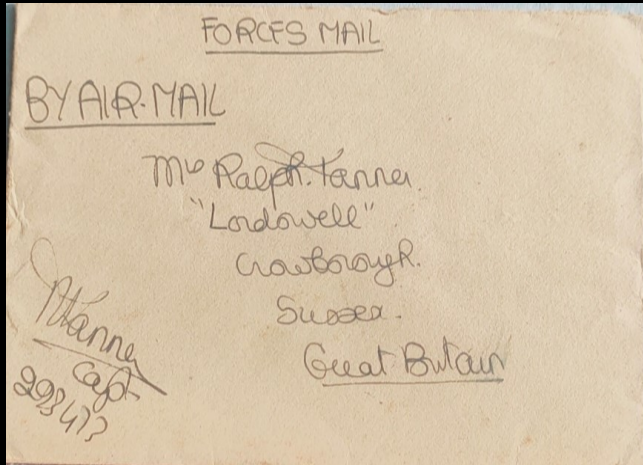 FORCES MAIL
BY AIR.MAIL
Mrs Ralph. Tanner.
"Lordswell"
Crowborough.
Sussex.
Great Britain
RTanner
Capt
293473